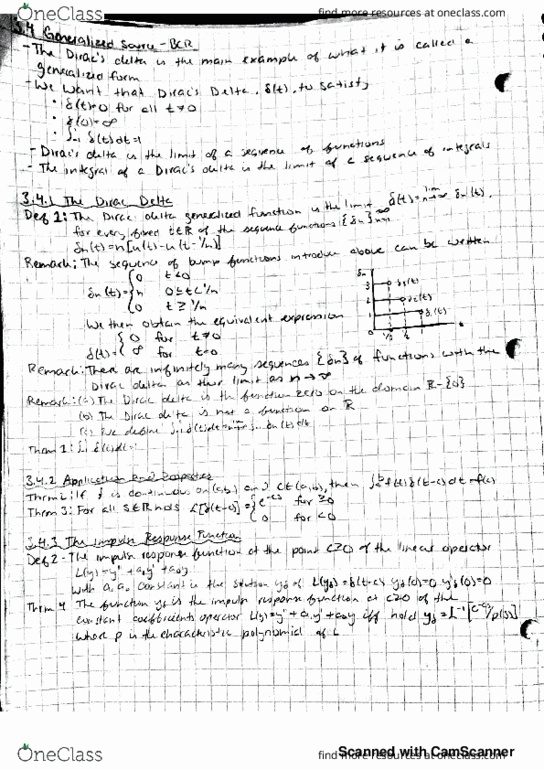 OneClass
find more resources at oneclass.com
3.4 Generalized Source - BCR
- The Dirac's delta is the main example of what it is called a
generalized form
- We want that Dirac's Delta, δ(t), to satisfy
• δ(t)=0 for all t≠0
• δ(0)=∞
• δ(t)dt=1
- Dirac's delta is the limit of a sequence of functions
- The integral of a Dirac's delta is the limit of a sequence of integrals
3.4.1 The Dirac Delta
Def 1: The Dirac delta generalized function is the limit δ(t)=lim n→∞ δn(t),
for every fixed t∈R of the sequence functions {δn}
δn(t)=n[u(t)-u(t-1/n)]
Remark: The sequence of bump functions introduce above can be written
δn(t)= { 0 t<0
n 0≤t<1/n
0 t≥1/n
δn
3
2
1
δ3(t)
δ2(t)
δ1(t)
1/3 1/2 1 t
We then obtain the equivalent expression
δ(t)= { 0 for t≠0
∞ for t=0
Remark: There are infinitely many sequences {δn} of functions with the
Dirac delta as their limit as n→∞
Remark: (a) The Dirac delta is the function zero on the domain R-{0}
(b) The Dirac delta is not a function on R
(c) We define
Thrm 1: δ(t)dt=1
3.4.2 Application and Properties
Thrm 2: If f is continuous on (a,b) and c∈(a,b), then f(t)δ(t-c)dt=f(c)
Thrm 3: For all s∈R holds L[δ(t-c)]= { e^-cs for ≥0
0 for <0
3.4.3 The Impulse Response Function
Def 2 - The impulse response function at the point c≥0 of the linear operator
L(y)=y''+a₁y'+a₀y
with a₁ a₀ constant is the solution yδ of L(yδ)=δ(t-c) yδ(0)=0 y'δ(0)=0
Thrm 4 The function yδ is the impulse response function at c≥0 of the
constant coefficients operator L(y)=y''+a₁y'+a₀y iff hold yδ=L⁻¹[e^-cs/p(s)]
where p is the characteristic polynomial of L
Scanned with CamScanner
OneClass
find more resources at oneclass.com